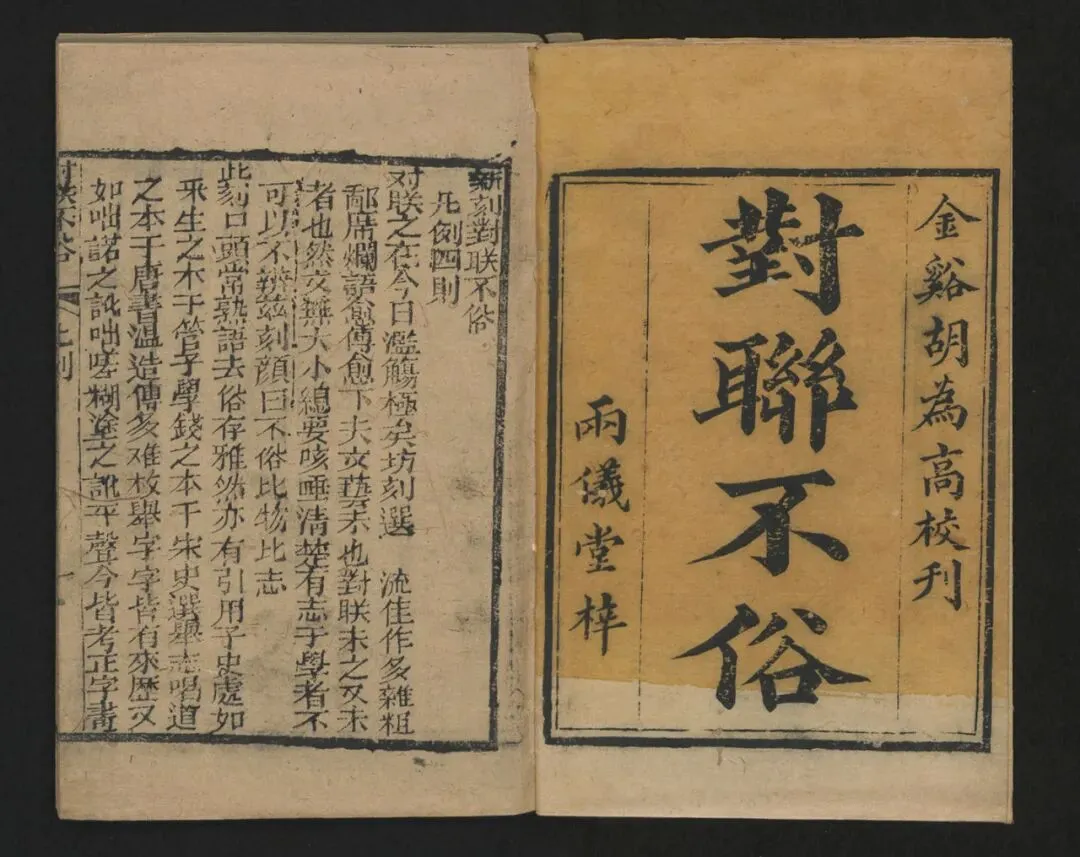 金谿胡為高校刊
對聯不俗
兩儀堂梓
新刻對联不俗
凡例四則
对联之在今日濫觴極矣坊刻選 流佳作多雜粗
鄙席爛語愈傳愈下夫文藝末也對联末之又末
者也然文無大小總要咳唾清楚有志于學者不
可以不辨兹刻顔曰不俗比物比志
此刻口頭常熟語去俗存雅然亦有引用子史處如
釆生之木于管子學錢之本于宋史選舉志唱道
之本于唐書溫造傳多难枚舉字字皆有來歷又
如咄諾之訛咄嗟糊塗之訛平聲今皆考正字畫
对联不俗 凡例 一